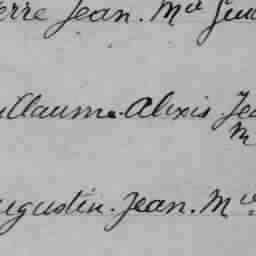 erre Jean. Mce Guil
uillaume. Alexis Jea
M
ugustin. Jean. Mce